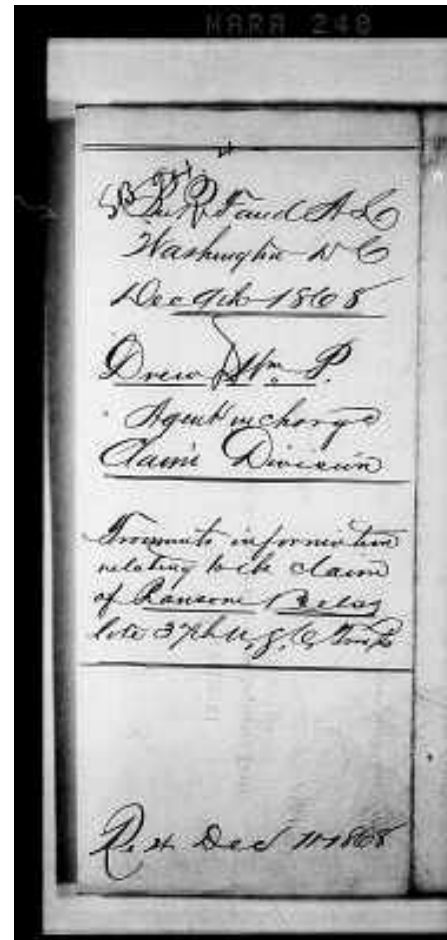 NARA 240
Bu R F and A L
Washington D C
Dec 9th 1868
Drew Wm P.
Agent in charge
Claim Division
Transmits information
relating to the claim
of Ransome
late 37th U, S, C, Troops
Dec 10 1868